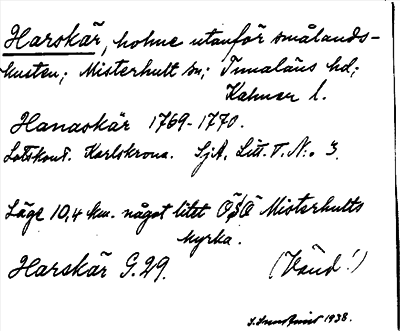 Harskär, holme utanför smålands-
kusten; Misterhult sn; Tunaläns hd;
Kalmar l.
Hanaskär 1769-1770.
Lotskont. Karlskrona. SjA. Litt. T. N:o 3.
Läge 10,4 km. något litet ÖSÖ Misterhults
kyrka.
Harskär G.29. (Vänd!)
1938.